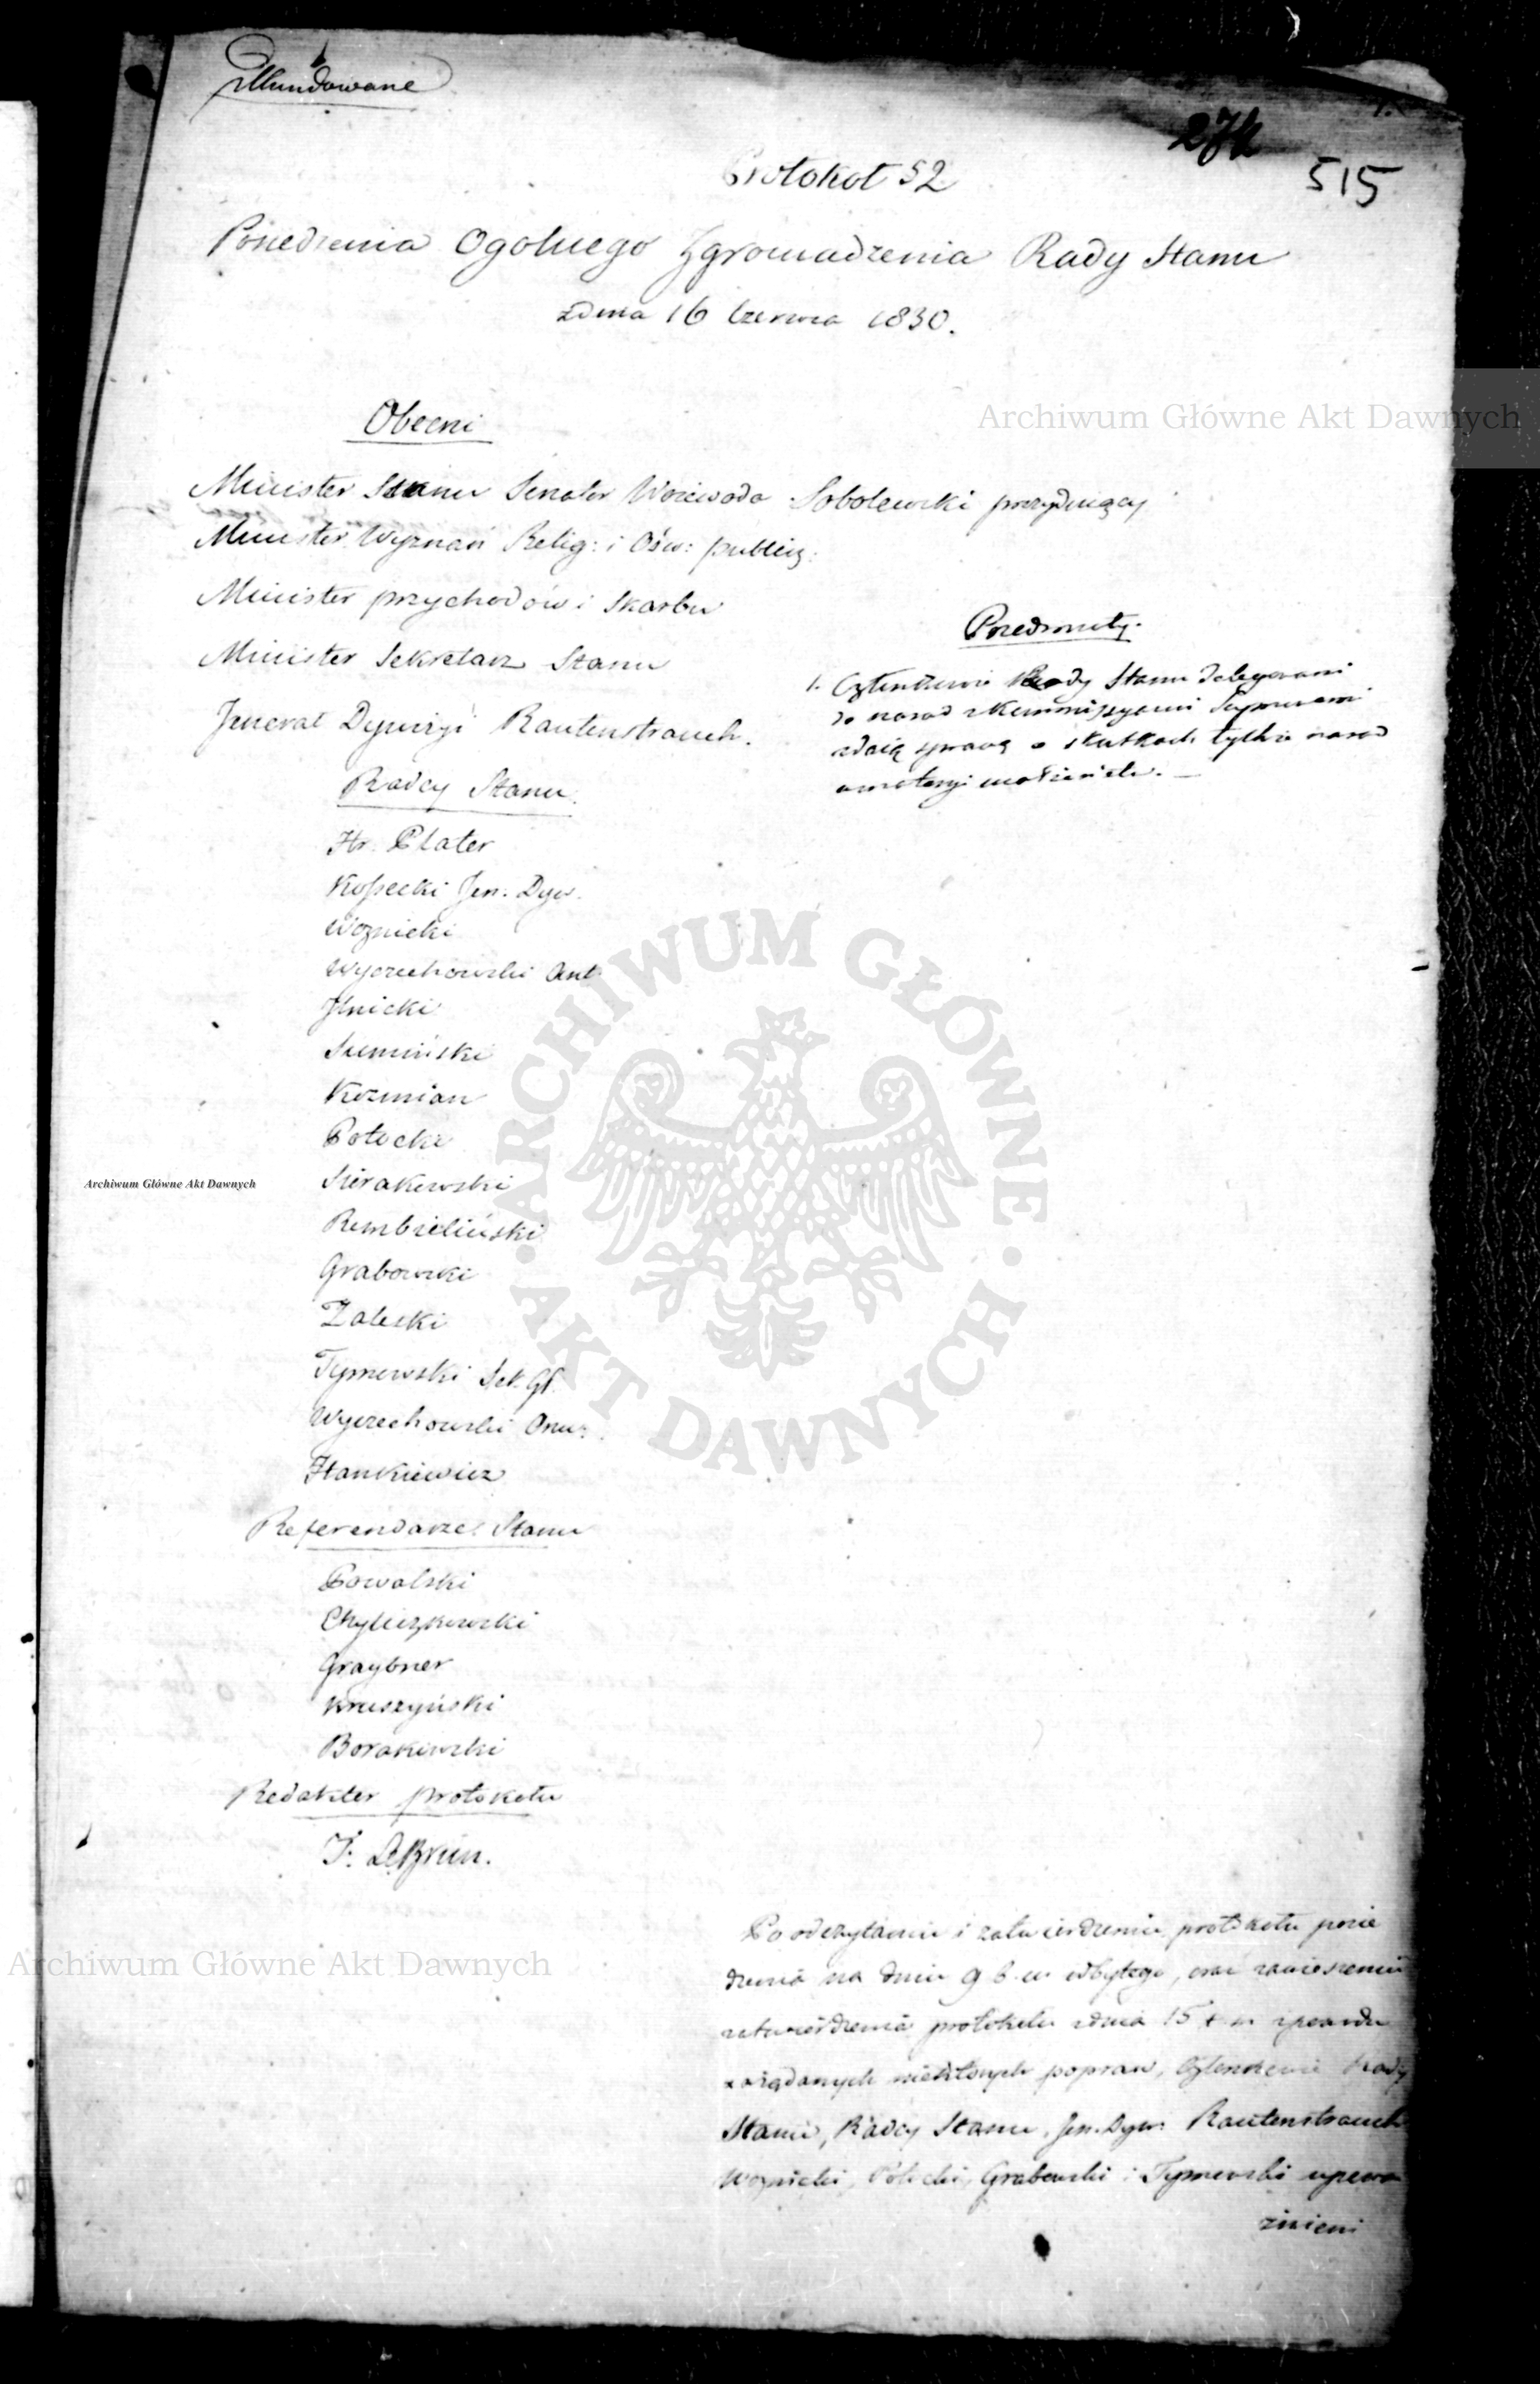 Mundowane
274
515
Protokół 52
Posiedzenia Ogolnego Zgromadzenia Rady Stanu
z dnia 16 Czerwca 1830.
Obecni
Minister Stanu Senator Woiewoda Sobolewski prezyduiący
Minister Wyznań Relig: i Ośw: publicz:
Minister przychodów i Skarbu
Minister Sekretarz Stanu
Jenerał Dywizyi Rautenstrauch.
Radcy Stanu.
Hr. Plater
Kossecki Jen. Dyw.
Woznicki
Wyczechowski Ant
Ilnicki
Sumiński
Kozmian
Potocki
Sierakowski
Rembieliński
Grabowski
Zaleski
Tymowski Sek. Gł.
Wyczechowski Onu:
Hankiewicz
Referendarze Stanu
Kowalski
Chyliczkowski
Graybner
Kruszyński
Borakowski
Redaktor protokołu
J. LeBrun.
Przedmioty.
1. Członkowie Rady Stanu delegowani
do narad z Kommissyami Seymowemi
zdaią sprawę o skutkach tychże narad
w materyi małżeństw.
Po odczytaniu i zatwierdzeniu protokołu posie
dzenia na dniu 9 b. m odbytego, oraz zawieszeniu
zatwierdzenia protokołu z dnia 15 t. m z powodu
zażądanych niektórych popraw, Członkowie Rady
Stanu, Radcy Stanu, Jen. Dyw: Rautenstrauch
Woznicki, Potocki, Grabowski i Tymowski upowa
żnieni
Archiwum Główne Akt Dawnych
Archiwum Główne Akt Dawnych
Archiwum Główne Akt Dawnych
ARCHIWUM GŁÓWNE · AKT DAWNYCH ·